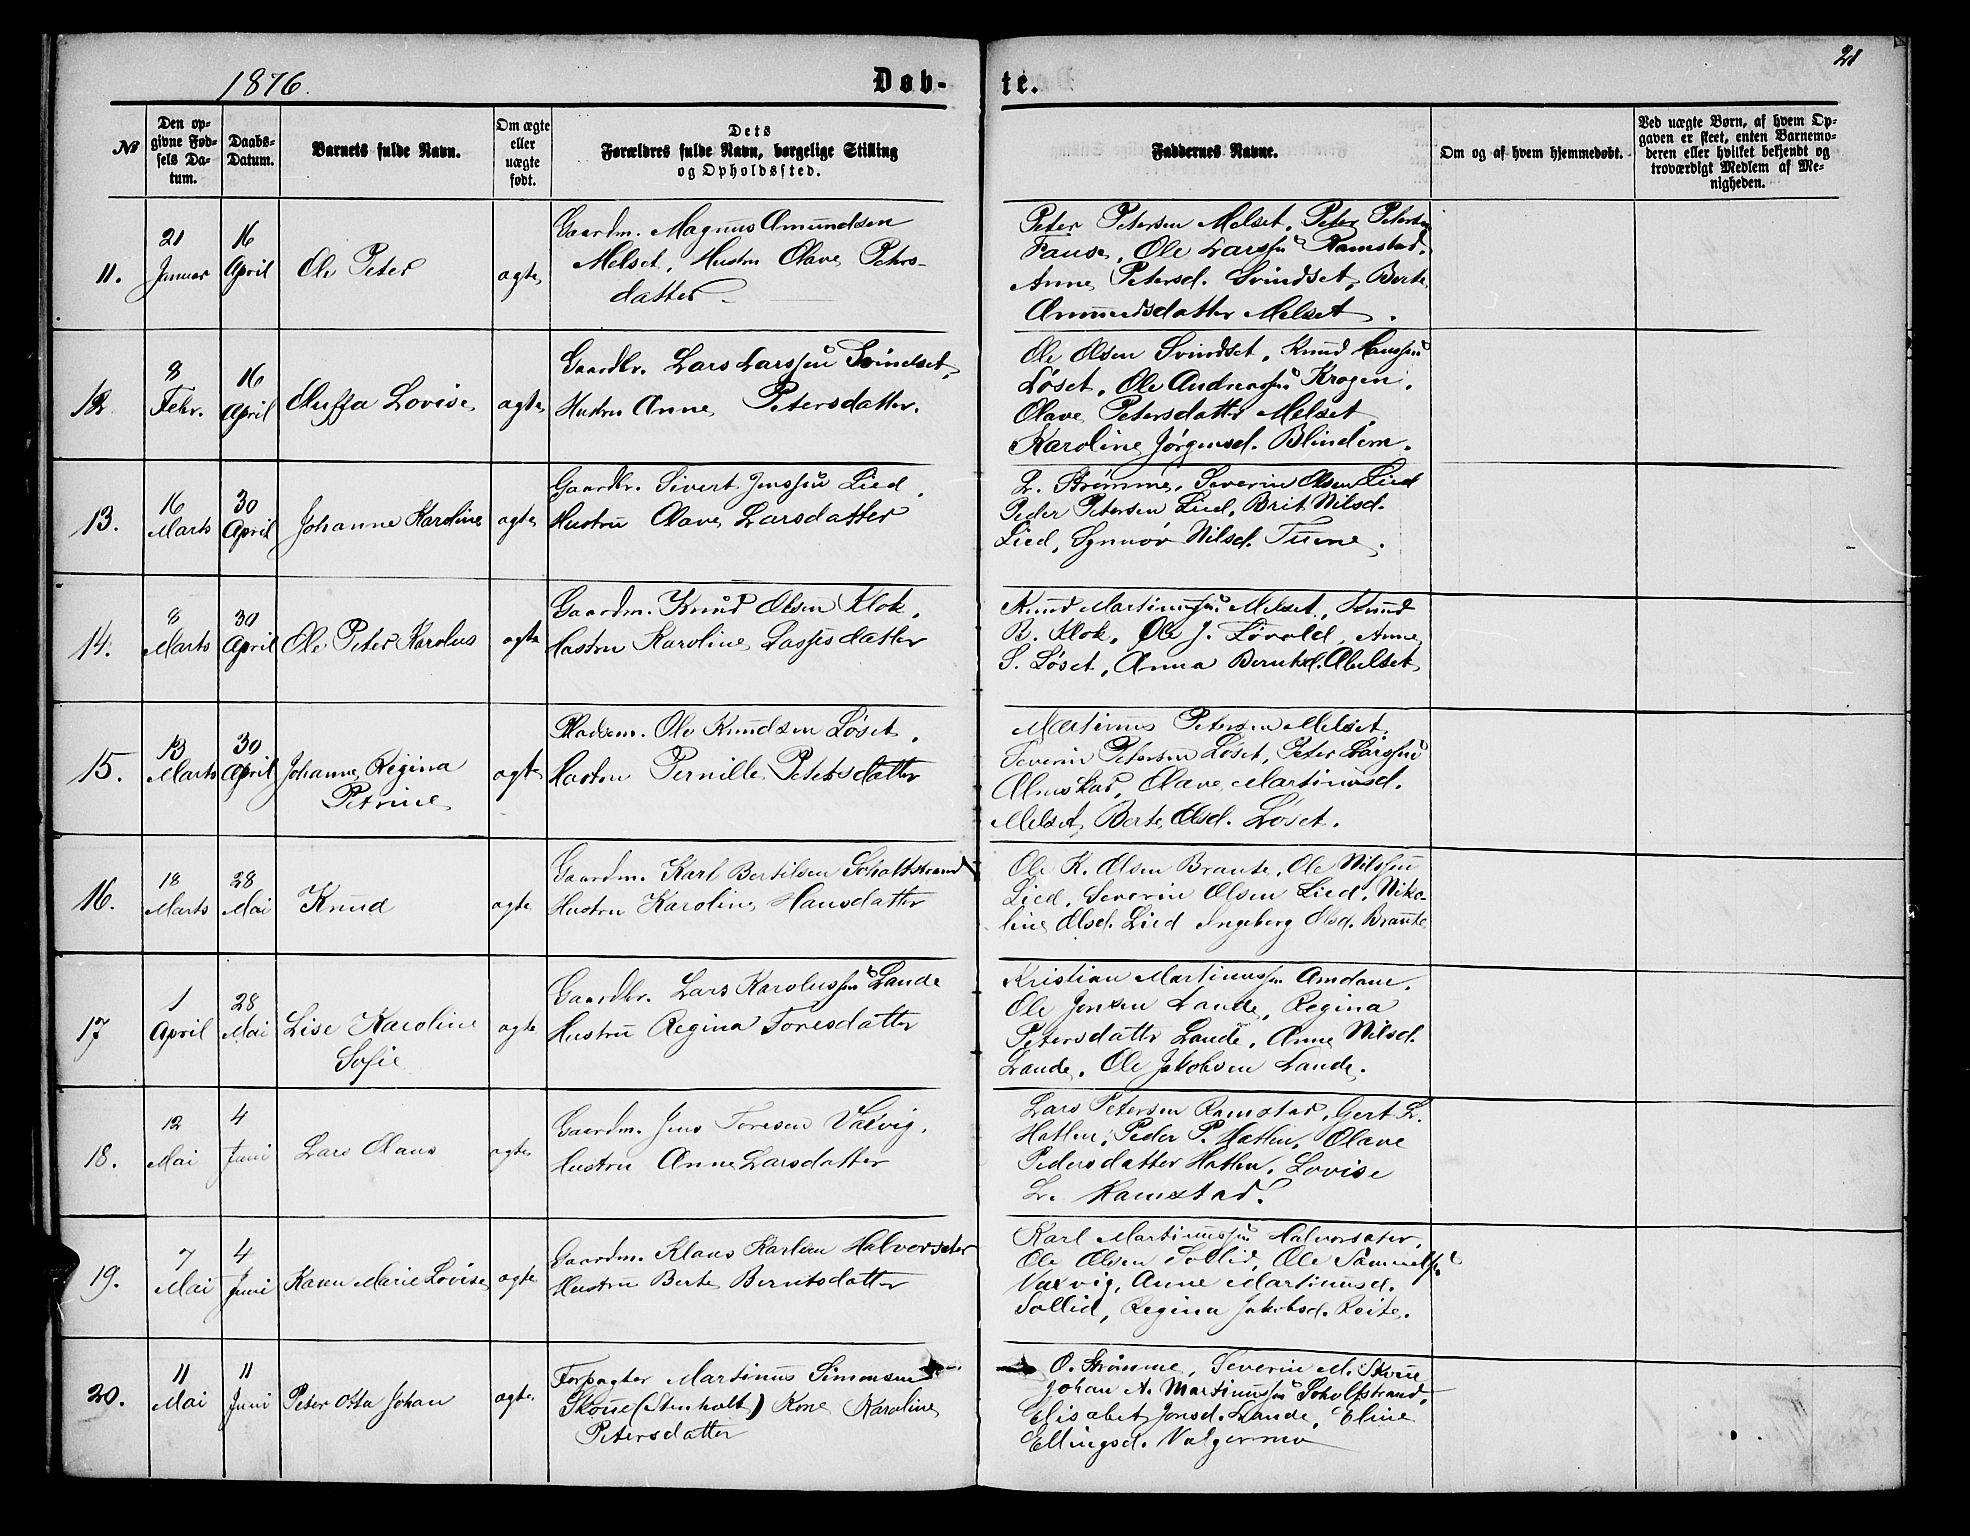 1876. Døb-te. 21
№
Den opgivne Fødsels Datum.
Daabs-Datum.
Barnets fulde Navn.
Om ægte eller uægte født.
Dets Forældres fulde Navn, borgelige Stilling og Opholdssted.
Faddernes Navne.
Om og af hvem hjemmedøbt.
Ved uægte Børn, af hvem Opgaven er skeet, enten Barnemoderen eller hvilket bekjendt og troværdigt Medlem af Menigheden.
11. 21 Januar 16 April Ole Peter ægte
Gaardm. Magnus Amundsen
Melset, Hustru Olave Peters-
datter
Peter Petersen Melset, Peter Petersen
Fause, Ole Larssen Ramstad,
Anne Petersd. Svindset, Berte
Amundsdatter Melset.
12. 8 Febr. 16 April Lovise ægte
Gaardbr. Lars Larssen Svindset,
Hustru Anne Petersdatter.
Ole Olsen Svindset, Knud Hanssen
Løset, Ole Andreassen Krogen,
Olave Petersdatter Melset,
Karoline Jørgensd. Blindem.
13. 16 Marts 30 April Johanne Karoline ægte
Gaardbr. Sivert Jenssen Lied,
Hustru Olave Larsdatter
L. Strømme, Severin Olsen Lied
Peder Petersen Lied, Brit Nilsd.
Lied, Synnøv Nilsd. Tuene.
14. 8 Marts 30 April Ole Peter Karolus ægte
Gaardm. Knud Olsen Klok,
Hustru Karoline Lassesdatter
Knud Martinussen Melset, Knud
B. Klok, Ole J. Løvold, Anne
S. Løset, Anna Berntsd. Abelset
15. 13 Marts 30 April Johanne Regina
Petrine ægte
Pladsm. Ole Knudsen Løset,
Hustru Pernille Petersdatter
Martinus Petersen Melset,
Severin Petersen Løset, Peter Larssen
Almskar, Olave Martinusd.
Melset, Berte Olsd. Løset.
16. 18 Marts 28 Mai Knud ægte
Gaardm. Karl Bertilsen Scholtstrand
Hustru Karoline Hansdatter
Ole K. Olsen Braute, Ole Nilssen
Lied, Severin Olsen Lied, Niko-
line Olsd. Lied Ingeborg Olsd. Braute
17 1 April 28 Mai Lise Karoline
Sofie ægte
Gaardbr. Lars Karolussen Lande
Hustru Regina Toresdatter
Kristian Martinussen Amdam,
Ole Jensen Lande, Regina
Petersdatter Lande, Anne Nilsd.
Lande, Ole Jakobsen Lande.
18. 12 Mai 4 Juni Lars Olaus ægte
Gaardm. Jens Toresen Valvig,
Hustru Anne Larsdatter
Lars Petersen Ramstad, Gert L.
Hatlen, Peder P. Hatlen, Olave
Pedersdatter Hatlen, Lovise
L. Ramstad.
19. 7 Mai 4 Juni Karen Marie Lovise ægte
Gaardm. Klaus Karlsen Halvorsæter
Hustru Berte Berntsdatter
Karl Martinussen Halvorsæter,
Ole Olsen Sollid, Ole Samuels.
Varvig, Anne Martinusd.
Sollid, Regina Jakobsd. Reite.
20. 11 Mai 11 Juni Peter Otto Johan ægte
Forpagter Martinus Simonsen
Skoue (Stenholt) Kone Karoline
Petersdatter
O. Strømme, Severin M. Skoue
Johan A. Martinussen Scholtstrand,
Elisabet Jonsd. Lande, Eline
Ellingsd. Valgermo